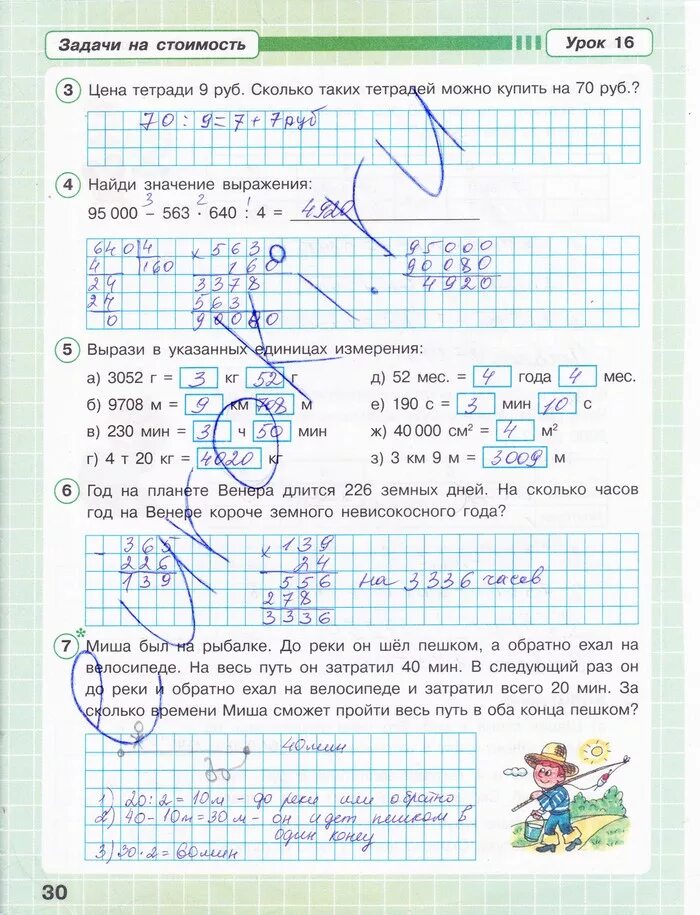 Задачи на стоимость
Урок 16
3 Цена тетради 9 руб. Сколько таких тетрадей можно купить на 70 руб.?
70 : 9 = 7 + 7 руб
4 Найди значение выражения:
3 2 1
95 000 – 563 · 640 : 4 = 4920
640 4 × 5630 95000
4 160 160 90080
24 3378 4920
24 563
0 90080
5 Вырази в указанных единицах измерения:
а) 3052 г = 3 кг 52 г
д) 52 мес. = 4 года 4 мес.
б) 9708 м = 9 км 708 м
е) 190 с = 3 мин 10 с
в) 230 мин = 3 ч 50 мин
ж) 40 000 см² = 4 м²
г) 4 т 20 кг = 4020 кг
з) 3 км 9 м = 3009 м
6 Год на планете Венера длится 226 земных дней. На сколько часов
год на Венере короче земного невисокосного года?
– 365 × 139
226 24
139 556 на 3336 часов
278
3336
7* Миша был на рыбалке. До реки он шёл пешком, а обратно ехал на
велосипеде. На весь путь он затратил 40 мин. В следующий раз он
до реки и обратно ехал на велосипеде и затратил всего 20 мин. За
сколько времени Миша сможет пройти весь путь в оба конца пешком?
40мин
1) 20 : 2 = 10м - до реки или обратно
2) 40 - 10м = 30м - он идет пешком в
один конец
3) 30 · 2 = 60мин
30